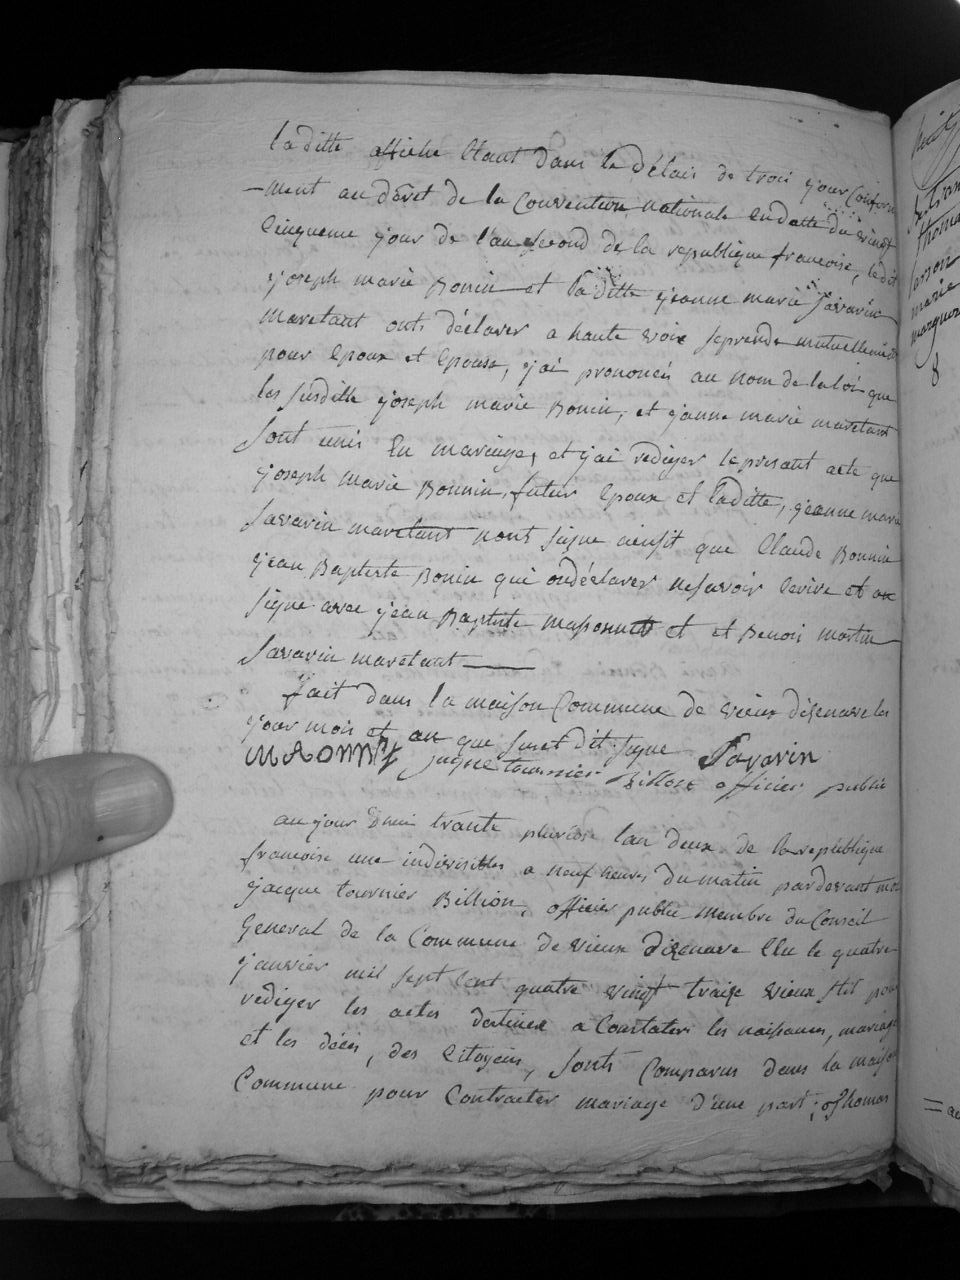 la ditte affiche Etant dans le délais de trois jour Conform
-ment au décret de la Convention nationale En datte du vingt
Cinqueme jour de l'an second de la republique francoise, le dit
joseph marie Bonin et la ditte jeanne marie Savarin
maretant onts déclarer a haute voix seprendre mutuellement
pour Epoux et Epouse, j'ai prononcés au nom de la loi que
les susditte joseph marie Bonin, et janne marie maretant
Sont unis En mariage, et j'ai rediger le present acte que
joseph marie Bonnin, futur Epoux et laditte, jeanne marie
Savarin maretant nont signe ainsit que Claude Bonnin
jean Baptiste Bonin qui ondéclarer nesavoir Ecrire et on
signe avec jean Baptiste massonnet et et Benois martin
Savarin maretant
fait dans la maison Commune de vieux dizenave les
jour mois et an que suset dit signe Savarin
MAONNIT jaque tournier Billion officier public
aujour d'hui trante pluvios lan deux de la republique
francoise une indivisibles a neuf heures du matin pardevant moi
jacque tournier Billion, officier public membre du Conseil
General de la Commune de vieux dizenave Elu le quatre
janvier mil sept Cent quatre vingt traize vieux stil pour
rediger les actes destinée a Constater les naissances, mariage
et les décés, des Citoyens, sonts Comparus dans la maison
Commune pour Contracter mariage d'une part; thomas